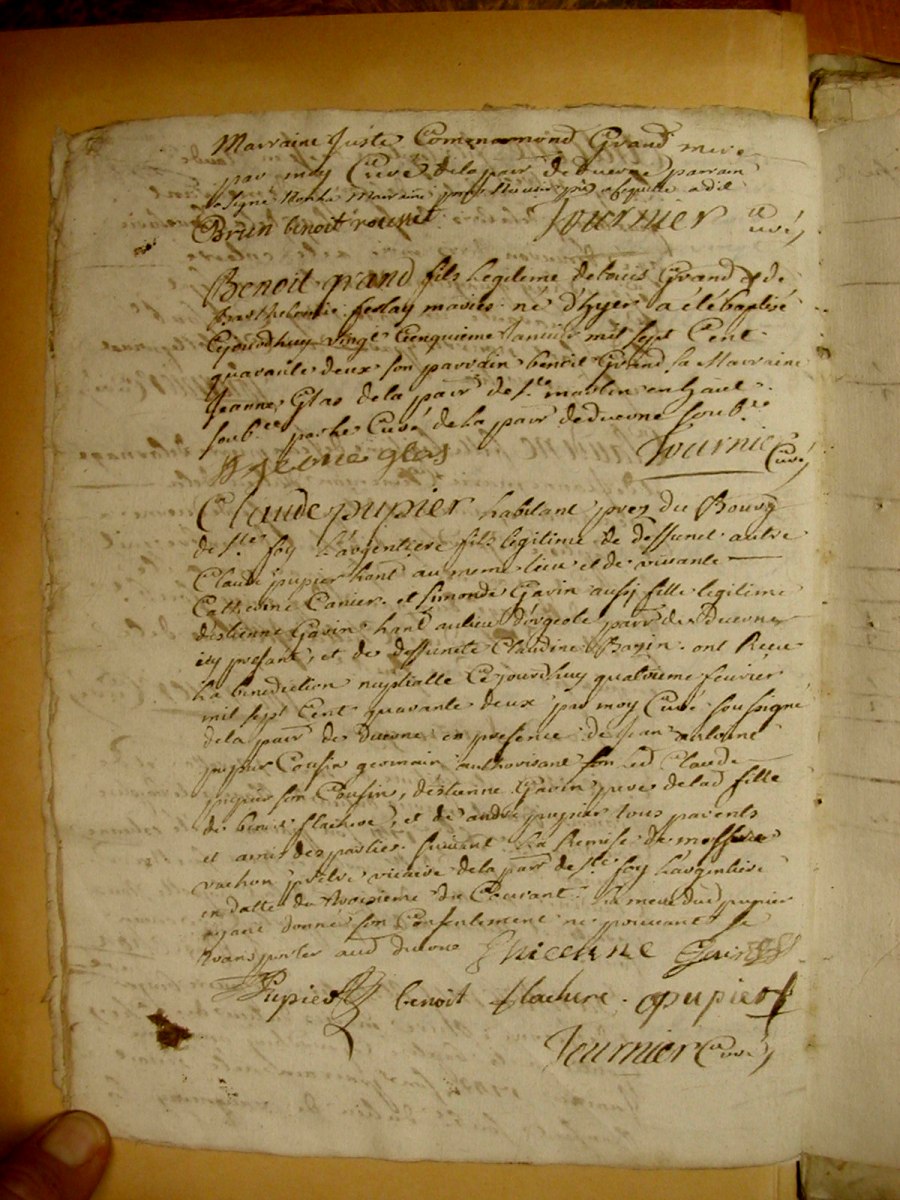 Marraine Juste Comenamond Grand mere
par moy Curé de la parr de duerne parrain
a signé non la Marraine pour
Brun benoit rousset Fournier Curé
Benoit grand fils legitime de louis Grand & de
Barthelemie feslay mariés né d'hyer a été baptisé
Cejourdhuy vingt Cienquieme Janvier mil sept Cent
quarante deux son parrain benoit Grand sa Marraine
Jeanne Glas de la parr de St martin en haut
soub par le Curé de la parr de duerne soub
Jeane glas Fournier Curé
Claude pupier habitant pres du Bourg
de Ste foy L'argentiere fils legitime de deffunct autre
Claude pupier hant au meme lieu et de vivante
Catherine Canier et Simonde Gavin aussy fille legitime
destienne Gavin hant au lieu d'orgeole parr de Duerne
icy presant, et de deffuncte Claudine Bazin ont Receu
La benediction nuptialle Cejourdhuy quatrieme fevrier
mil sept Cent quarante deux par moy Curé sousigné
de la parr de duerne en presence de Jean antoine
pupier Cousin germain authorisant led Claude
pupier son Cousin, destienne Gavin pere de lad fille
de benoit flachere, et de andré pupier tous parents
et amis des parties suivant La Remise de messire
vachon prêtre vicaire de la parr de Ste foy L'argentiere
en datte du troisieme du Courant la mere dud pupier
ayant donné son Consentement ne pouvant se
transporter aud duerne Thicenne Gain
Pupier benoit flachere apupier
Fournier Curé